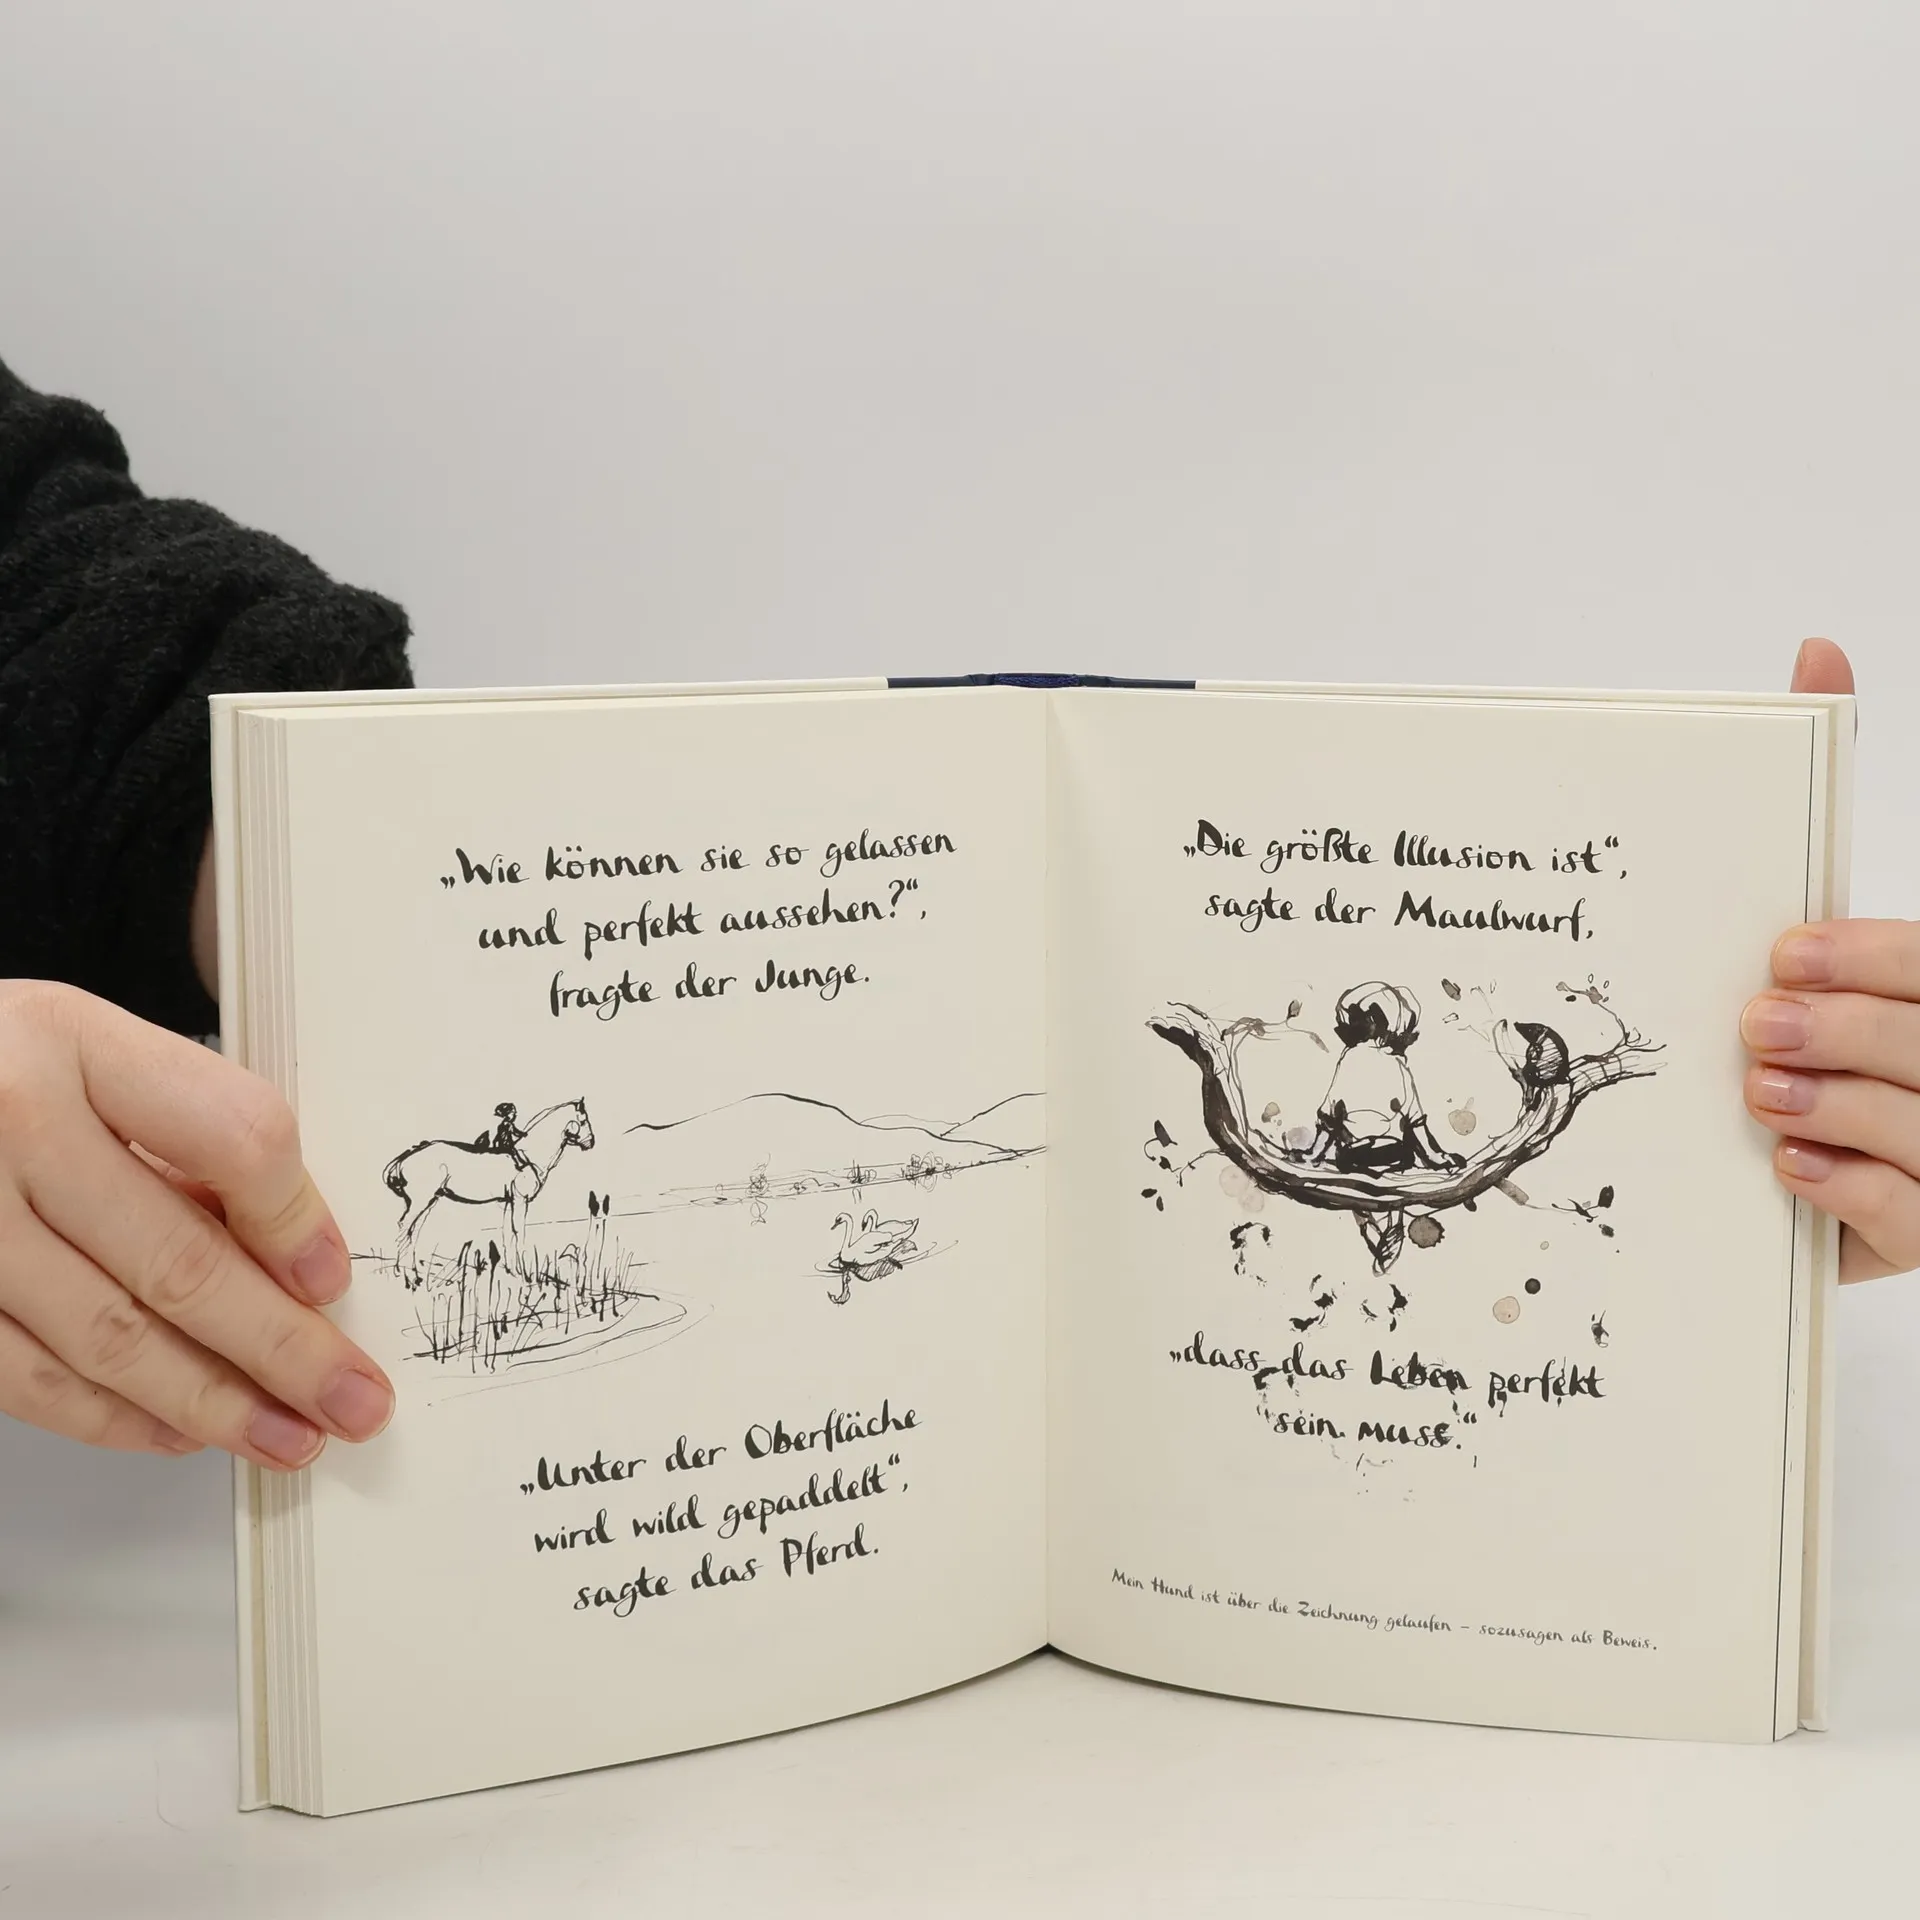 „Wie können sie so gelassen
und perfekt aussehen?“,
fragte der Junge.
„Unter der Oberfläche
wird wild gepaddelt“,
sagte das Pferd.
„Die größte Illusion ist“,
sagte der Maulwurf,
„dass das Leben perfekt
sein muss.“
Mein Hund ist über die Zeichnung gelaufen – sozusagen als Beweis.